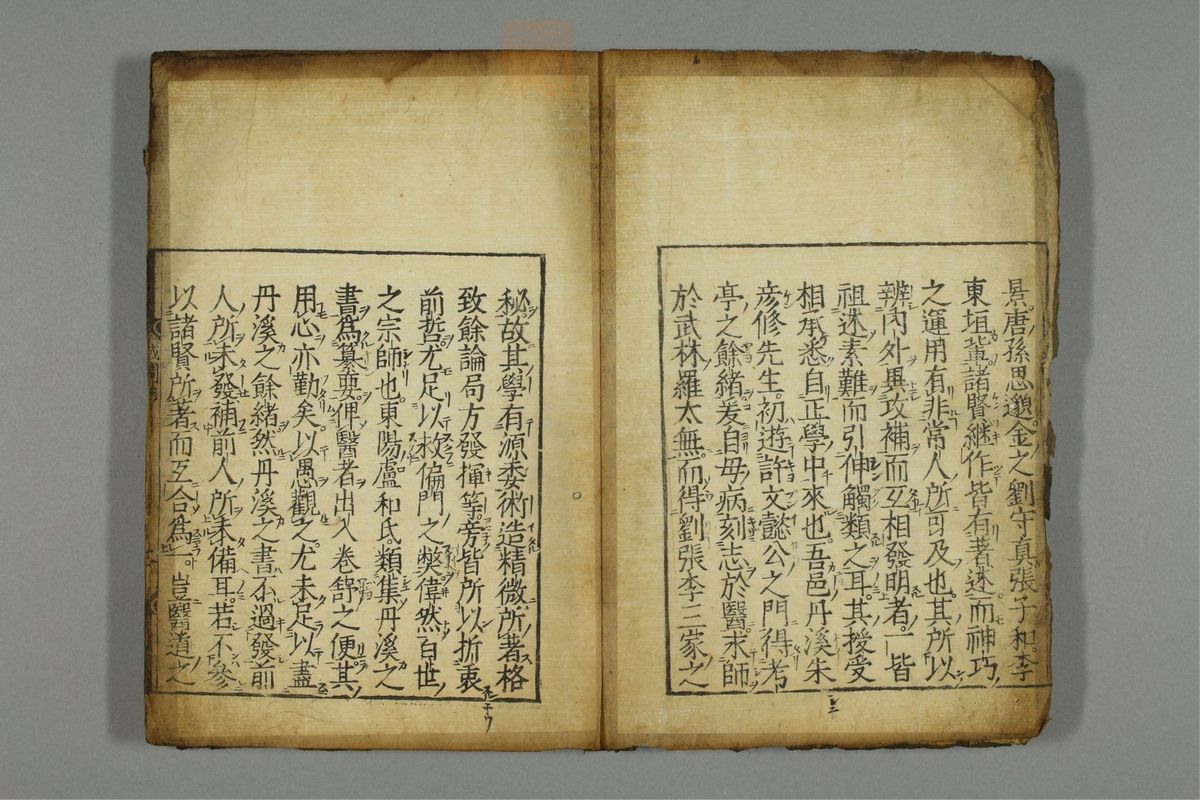 景唐孫思邈金之劉守真張子和李
東垣軰諸賢継作皆有著述而神巧
之運用有非常人所可及也其所以
辨内外異攻補而互相發明者一皆
祖述素難而引伸觸類之耳其授受
相承悉自正學中來也吾邑丹溪朱
彦修先生初遊許文懿公之門得考
亭之餘緒爰自母病刻志於醫求師
於武林羅太無而得劉張李三家之
秘故其學有源委術造精微所著格
致餘論局方發揮等旁皆所以折衷
前哲尤足以救偏門之弊偉然百世
之宗師也東陽盧和氏類集丹溪之
書爲纂要俾醫者出入卷舒之便其
用心亦勤矣以愚觀之尤未足以盡
丹溪之餘緒然丹溪之書不過發前
人所未發補前人所未備耳若不參
以諸賢所著而互合爲一豈醫道之